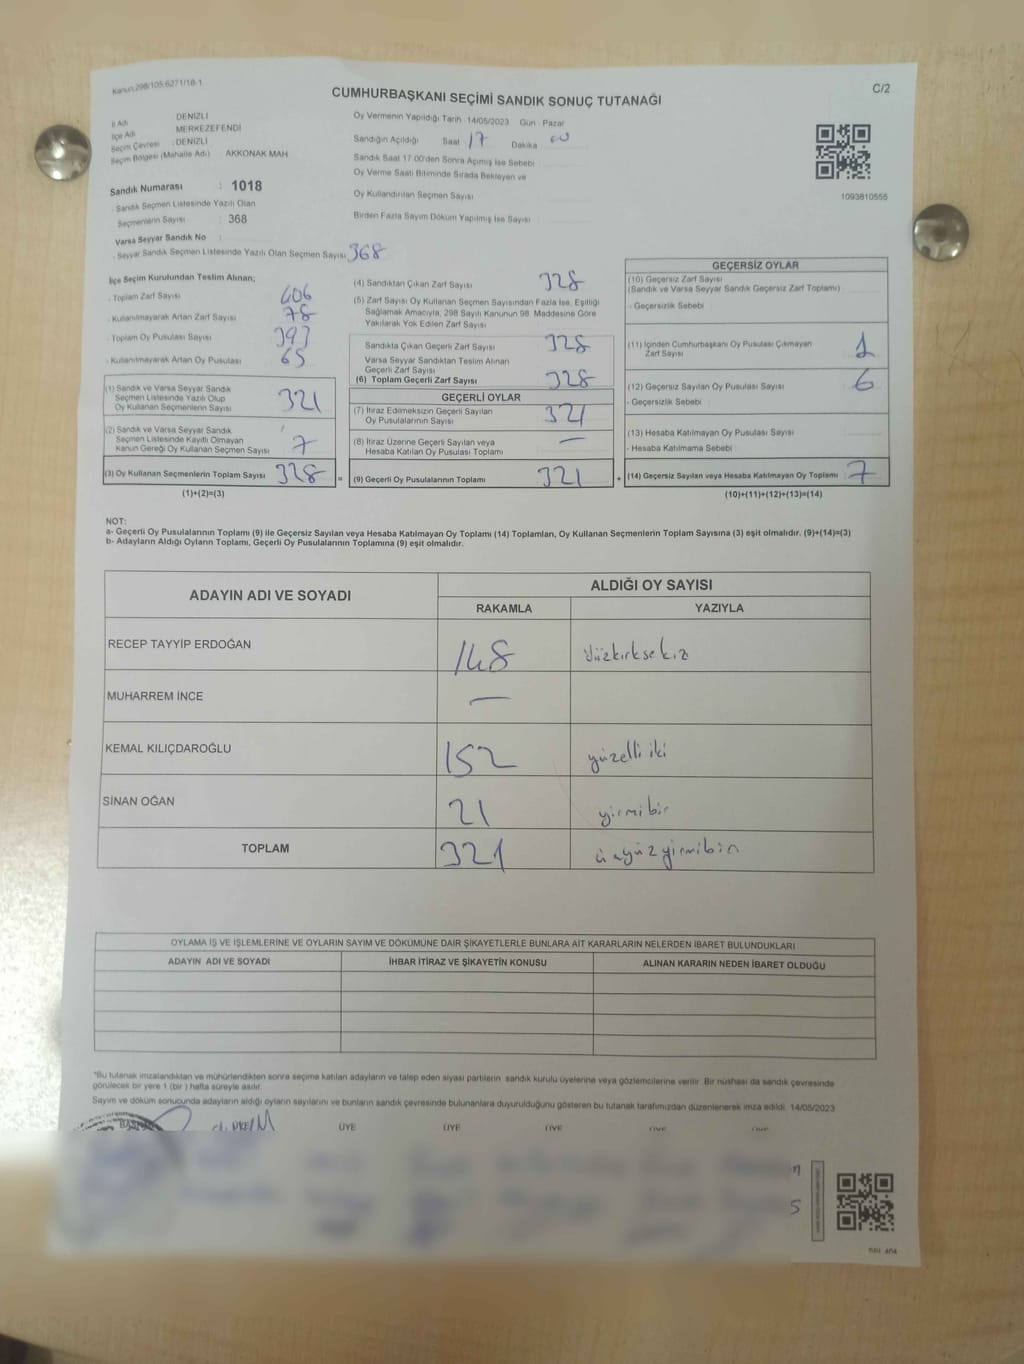 Kanun:298/105,6271/18-1
C/2
CUMHURBAŞKANI SEÇİMİ SANDIK SONUÇ TUTANAĞI
İl Adı DENİZLİ
İlçe Adı MERKEZEFENDİ
Seçim Çevresi : DENİZLİ
Seçim Bölgesi (Mahalle Adı) AKKONAK MAH
Sandık Numarası : 1018
Sandık Seçmen Listesinde Yazılı Olan
Seçmenlerin Sayısı : 368
Varsa Seyyar Sandık No :
- Seyyar Sandık Seçmen Listesinde Yazılı Olan Seçmen Sayısı 368
Oy Vermenin Yapıldığı Tarih 14/05/2023 Gün : Pazar
Sandığın Açıldığı Saat 17 Dakika 00
Sandık Saat 17.00'den Sonra Açılmış İse Sebebi
Oy Verme Saati Bitiminde Sırada Bekleyen ve
Oy Kullandırılan Seçmen Sayısı
Birden Fazla Sayım Döküm Yapılmış İse Sayısı
1093810555
İlçe Seçim Kurulundan Teslim Alınan;
- Toplam Zarf Sayısı 406
- Kullanılmayarak Artan Zarf Sayısı 78
- Toplam Oy Pusulası Sayısı 393
- Kullanılmayarak Artan Oy Pusulası 65
(1) Sandık ve Varsa Seyyar Sandık
Seçmen Listesinde Yazılı Olup
Oy Kullanan Seçmenlerin Sayısı 321
(2) Sandık ve Varsa Seyyar Sandık
Seçmen Listesinde Kayıtlı Olmayan
Kanun Gereği Oy Kullanan Seçmen Sayısı 7
(3) Oy Kullanan Seçmenlerin Toplam Sayısı 328
(1)+(2)=(3)
(4) Sandıktan Çıkan Zarf Sayısı 328
(5) Zarf Sayısı Oy Kullanan Seçmen Sayısından Fazla İse, Eşitliği
Sağlamak Amacıyla, 298 Sayılı Kanunun 98. Maddesine Göre
Yakılarak Yok Edilen Zarf Sayısı
Sandıkta Çıkan Geçerli Zarf Sayısı 328
Varsa Seyyar Sandıktan Teslim Alınan
Geçerli Zarf Sayısı
(6) Toplam Geçerli Zarf Sayısı 328
GEÇERLİ OYLAR
(7) İtiraz Edilmeksizin Geçerli Sayılan
Oy Pusulalarının Sayısı 321
(8) İtiraz Üzerine Geçerli Sayılan veya
Hesaba Katılan Oy Pusulası Toplamı —
= (9) Geçerli Oy Pusulalarının Toplamı 321
GEÇERSİZ OYLAR
(10) Geçersiz Zarf Sayısı
(Sandık ve Varsa Seyyar Sandık Geçersiz Zarf Toplamı)
- Geçersizlik Sebebi
(11) İçinden Cumhurbaşkanı Oy Pusulası Çıkmayan
Zarf Sayısı 1
(12) Geçersiz Sayılan Oy Pusulası Sayısı 6
- Geçersizlik Sebebi
(13) Hesaba Katılmayan Oy Pusulası Sayısı
- Hesaba Katılmama Sebebi
+ (14) Geçersiz Sayılan veya Hesaba Katılmayan Oy Toplamı 7
(10)+(11)+(12)+(13)=(14)
NOT:
a- Geçerli Oy Pusulalarının Toplamı (9) ile Geçersiz Sayılan veya Hesaba Katılmayan Oy Toplamı (14) Toplamları, Oy Kullanan Seçmenlerin Toplam Sayısına (3) eşit olmalıdır. (9)+(14)=(3)
b- Adayların Aldığı Oyların Toplamı, Geçerli Oy Pusulalarının Toplamına (9) eşit olmalıdır.
ADAYIN ADI VE SOYADI
ALDIĞI OY SAYISI
RAKAMLA YAZIYLA
RECEP TAYYİP ERDOĞAN 148 Yüzkırksekiz
MUHARREM İNCE —
KEMAL KILIÇDAROĞLU 152 yüzelli iki
SİNAN OĞAN 21 yirmibir
TOPLAM 321 üçyüzyirmibir
OYLAMA İŞ VE İŞLEMLERİNE VE OYLARIN SAYIM VE DÖKÜMÜNE DAİR ŞİKAYETLERLE BUNLARA AİT KARARLARIN NELERDEN İBARET BULUNDUKLARI
ADAYIN ADI VE SOYADI İHBAR İTİRAZ VE ŞİKAYETİN KONUSU ALINAN KARARIN NEDEN İBARET OLDUĞU
*Bu tutanak imzalandıktan ve mühürlendikten sonra seçime katılan adayların ve talep eden siyasi partilerin sandık kurulu üyelerine veya gözlemcilerine verilir. Bir nüshası da sandık çevresinde
görülecek bir yere 1 (bir ) hafta süreyle asılır.
Sayım ve döküm sonucunda adayların aldığı oyların sayılarını ve bunların sandık çevresinde bulunanlara duyurulduğunu gösteren bu tutanak tarafımızdan düzenlenerek imza edildi. 14/05/2023
ÜYE ÜYE ÜYE ÜYE ÜYE